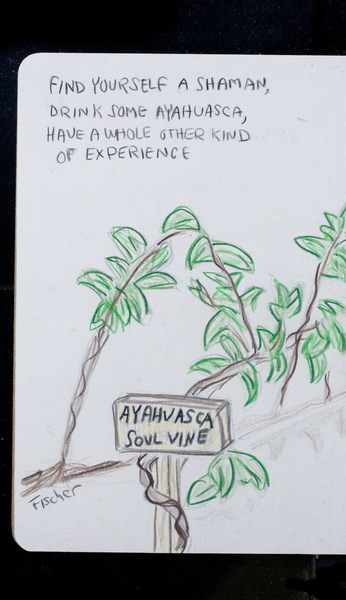 FIND YOURSELF A SHAMAN,
DRINK SOME AYAHUASCA,
HAVE A WHOLE OTHER KIND
OF EXPERIENCE
AYAHUASCA
SOUL VINE
Fischer